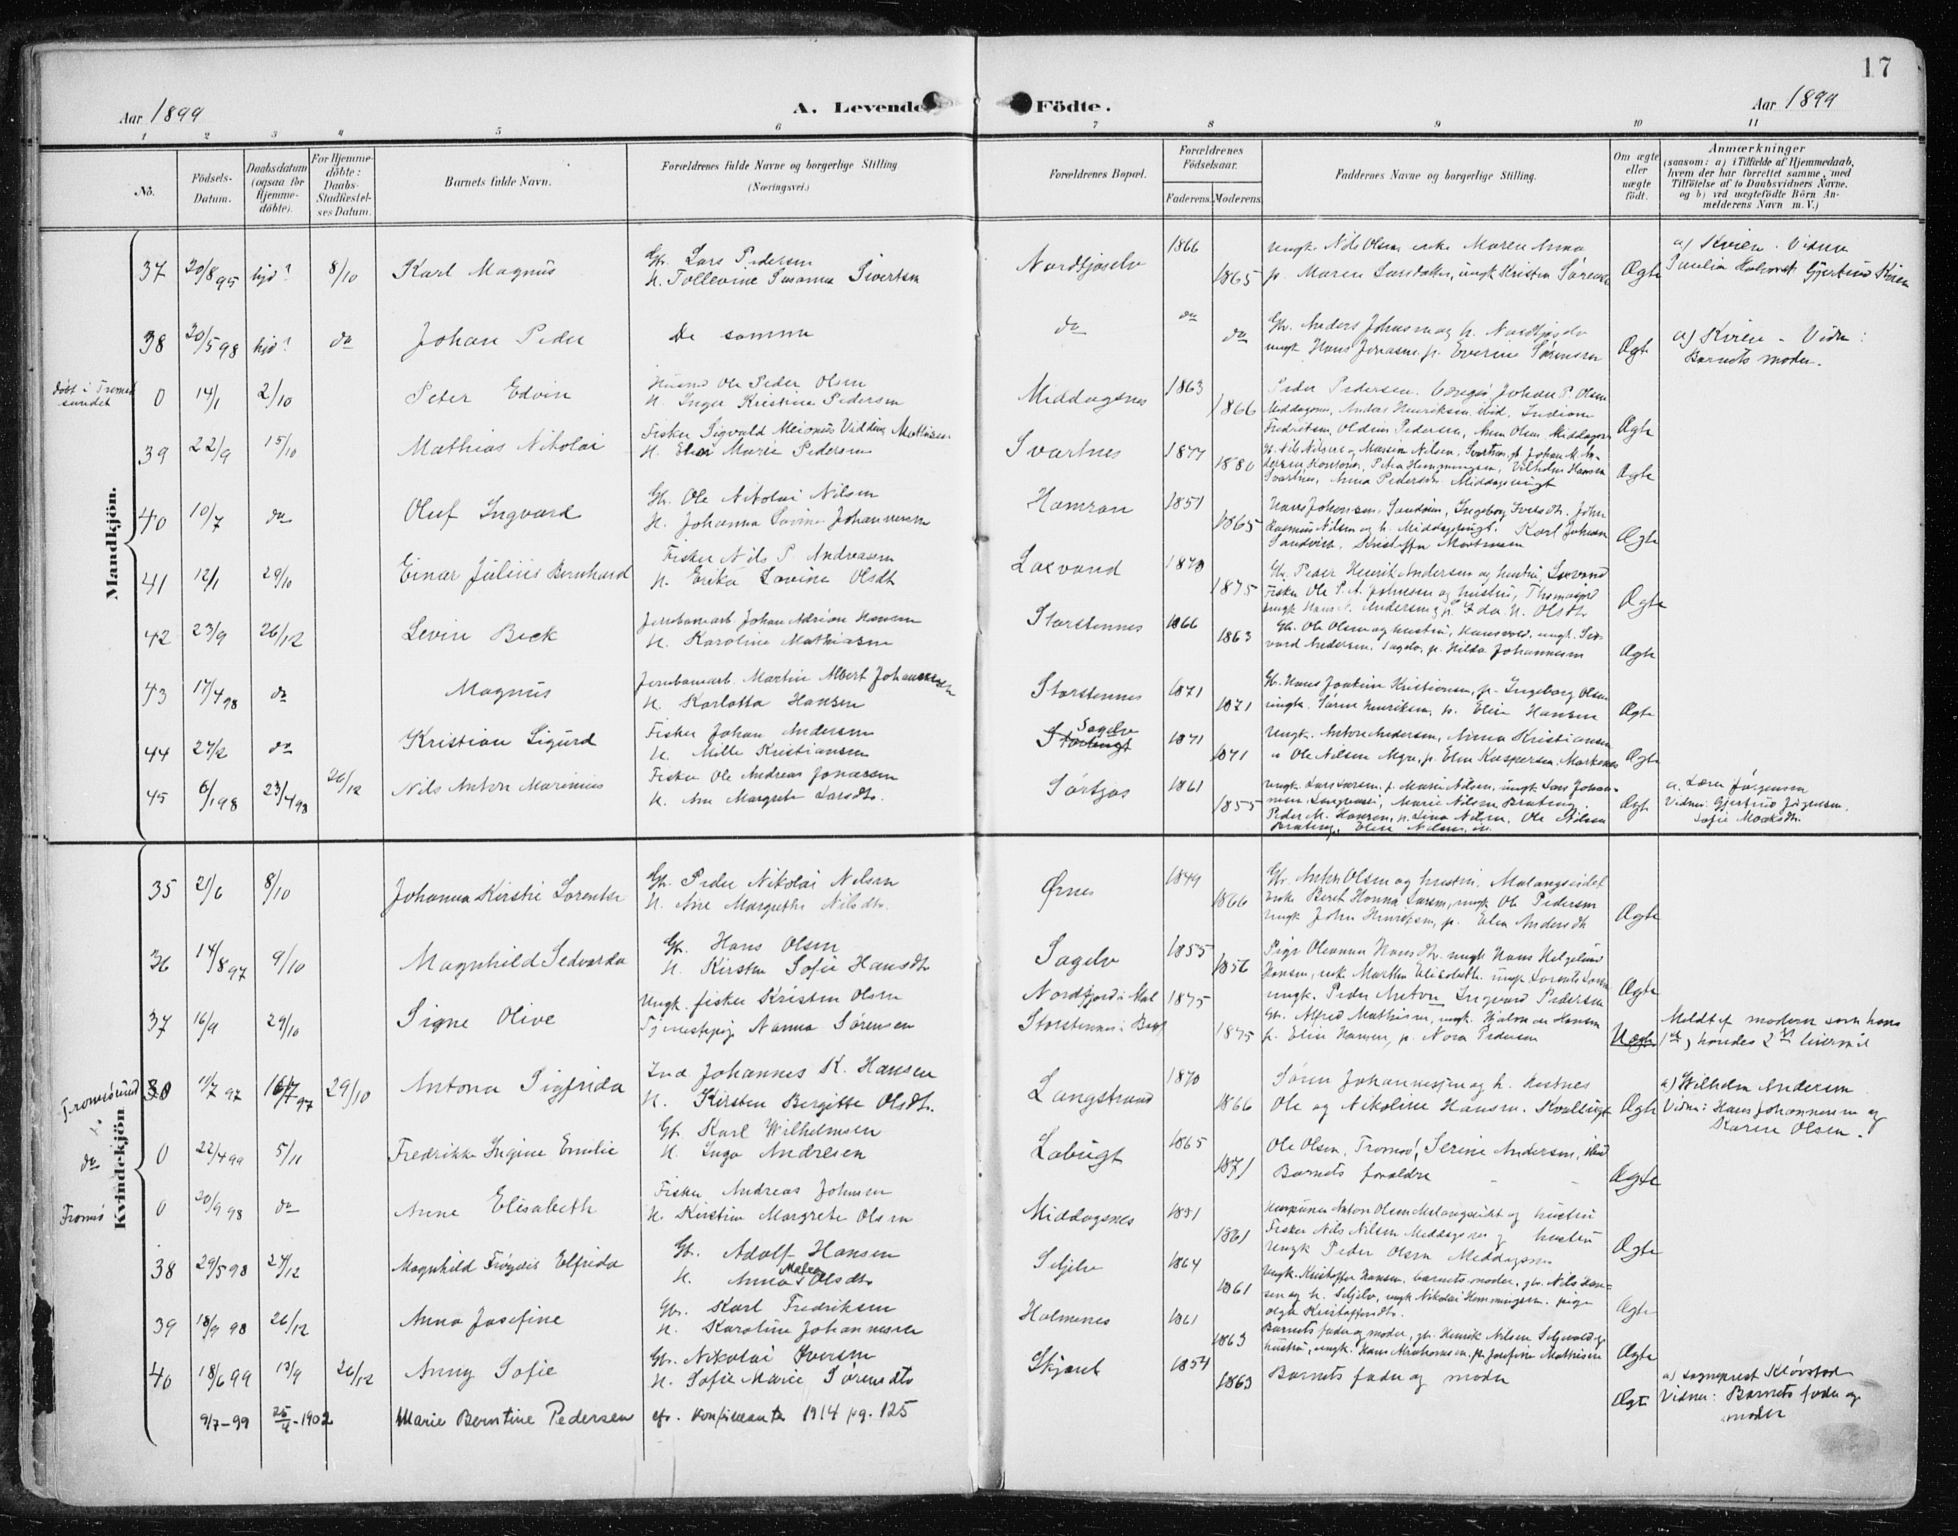 17
Aar 1899
A. Levende Födte.
Aar 1899
1 2 3 4 5 6 7 8 9 10 11
No.
Födsels-Datum.
Daabsdatum (ogsaa for Hjemme-döbte).
For Hjemme-döbte: Daabs-Stadfæstel-ses Datum.
Barnets fulde Navn.
Forældrenes fulde Navne og borgerlige Stilling
(Næringsvei.)
Forældrenes Bopæl.
Forældrenes Födselsaar.
Faderens. Moderens.
Faddernes Navne og borgerlige Stilling.
Om ægte eller uægte födt.
Anmærkninger
(saasom: a) i Tilfælde af Hjemmedaab,
hvem der har forrettet samme, med
Tilföielse af to Daabsvidners Navne,
og b) ved uægtefödte Börn An-
melderens Navn m. V.)
Mandkjön.
37 20/8 95 hjd? 8/10 Karl Magnus Gb. Lars Pedersen
H. Tollevine Susanna Sivertsen Nordfjoselv 1866 1865 ungk. Nils Olsen, enke Maren Anna
p. Maren Larsdatter, ungk Kristen Sørensen Ægte a) Kiren. Vidner
38 20/5 98 hjd? do Johan Peder De samme do do do Gb. Anders Johnsen og h. Nordfjoselv
ungk. Hans Jonassen, p. Everine Sørensen Ægt a) Kiren - Vidn:
Barnets moder.
døbt i Tromsøsundet 0 14/1 2/10 Peter Edvin Husmd Ole Peder Olsen
H. Inger Kristine Pedersen Middagsnes 1863 1866 Peder Pedersen. Johan P. Olsen
Middagsnes, Anders Henriksen ibid,
Fredriksen, Oldine Pedersen, Anna Olsen Middagsnes Ægte
39 22/9 15/10 Mathias Nikolai Fisker Sigvald Meionus Vidding Mathisen
H. Marie Pedersen Svartnes 1877 1880 Gb. Nils Nilsen og Massine Nilsen, Svartnes, gb. Johan M. An-
dersen Petra Hemmingsen, Vilhelm Hansen
Svartnes, Anna Pedersen Middagsbugt Ægte
40 10/7 do Oluf Ingvard Gb. Ole Nikolai Nilsen
H. Johanna Lovine Johannesen Hamran 1851 1865 Hans Johansen Sandvin, Ingeborg John
Rasmus Nilsen og h. Middagsbugt. Karl Johan
Sandvik. Kristoffer Mortensen Ægte
41 12/1 29/10 Einar Julius Bernhard Fisker Nils P. Andreasen
H. Erika Lovine Olsdt Laxvand 1870 1875 Gb. Peder Henrik Andersen og hustru, Laxvand
Fisker Ole P. A. Johnsen og hustru, Thomasjord
ungk Hans A. Andersen, p. Ida N. Olsdt. Ægte
42 23/9 26/12 Levin Beck Jernbanearb Johan Adrian Hansen
H. Karoline Mathiasen Storstennes 1866 1863 Gb. Ole Olsen og hustru, Hansvold, ungk. Sie-
vard Andersen, Sagelv, p. Hilda Johannesen Ægte
43 17/4 98 do Magnus Jernbanearb Martin Albert Johannesen
H. Karlotta Hansen Storstennes 1871 1871 Gb. Hans Joakim Kristiansen, p. Ingeborg Olsen
ungk. Søren Henriksen, p. Elise Hansen Ægte
44 27/2 do Kristian Sigurd Fisker Johan Andersen
H. Mille Kristiansen Sagelv 1871 1871 Ungk. Anton Andersen, Anna Kristiansen
Ole Nilsen Myre, p. Elen Kaspersen, Markenes Ægte
45 6/1 98 23/4 98 26/12 Nils Anton Marinius Fisker Ole Andreas Jonassen
H. Ane Margrete Larsdt. Sørtjos 1861 1855 ungk. Lars Larsen, p. Marie Nilsen, ungk Lars Johan-
Marie Nilsen
Peder M. Hansen, p. Lina Nilsen, Ole Nilsen
Elise Nilsen Ægte a. Lærer Jørgensen
Vidner: Gjertrud Jørgensen.
Sofie Mocksdt.
Kvindekjön
35 21/6 8/10 Johanna Kirstie Lorentse Gb. Peder Nikolai Nilsen
H. Ane Margrethe Nilsdt. Ørnes 1849 1866 Gb. Anton Olsen og hustru, Malangseidet
enke Beret Hanna Larsen, ungk Ole Pedersen
ungk John Hinriksen, p. Elen Andersdt Ægte
36 14/8 97 9/10 Magnhild Sedvarda Gb. Hans Olsen
H. Kirsten Sofie Hansdt Sagelv 1855 1856 Pige Oleanna Hansdt. ungk Hans Helgelund
Hansen, enke Martha Elisabeth. ungk Lorents
ungk. Peder Anton Ingvard Pedersen Ægte
37 16/9 29/10 Signe Olive Ungk. fisker Kristen Olsen
Tjenestepige Nanna Sørensen Nordfjord i Mal
Storstennes i Bals 1875 1875 Gb. Alfred Mathisen, ungk. Hjalmar Hansen
p. Elise Hansen, p. Nora Pedersen Uægte Meldt af moderen som hans
1ste, hendes 2det leiermål
Tromsøsund 30 11/7 97 16/7 97 29/10 Antona Sigfrida Ind Johannes K. Hansen
H. Kirsten Bergitte Olsdt. Langstrand 1870 1866 Søren Johannessen og h. Kostnes
Ole og Nikoline Hansen. Kvalbugt Ægte a) Wilhelm Andersen
Vidner: Hans Johannesen og
Karen Olsen.
do 0 22/4 99 5/11 Fredrikke Ingine Emilie Gb. Karl Wilhelmsen
H. Inga Andresen Labugt 1865 1871 Ole Olsen, Tromsø, Serine Andersen, ibid
Barnets forældre Ægte
Tromsø 0 20/9 98 do Anne Elisabeth Fisker Andreas Johnsen
H. Kirstine Margrete Olsen Middagsnes 1851 1861 Anton Olsen Malangseidet og hustru
Fisker Nils Nilsen Meddagsnes og hustru
Ungk Peder Olsen Meddagsnes Ægte
38 29/5 98 27/12 Magnhild Frøydis Elfrida Gb. Adolf Hansen
H. Anna Maren Olsdt Seljelv 1864 1861 Ungk. Kristoffer Hansen, barnets moder, gb. Nils Han-
sen og h. Seljelv, ungk Nikolai Hemmingsen. pige
Olga Kristoffersdt. Ægte
39 18/9 98 26/12 Anna Josefine Gb. Karl Fredriksen
H. Karoline Johannesen Holmenes 1861 1863 Barnets fader og moder, gb. Henrik Nilsen Seljevold og
hustru, ungk. Hans Abrahamsen, p. Josefine Mathisen Ægte
40 18/6 99 13/9 26/12 Anny Sofie Gb. Nikolai Iversen
H. Sofie Marie Sørensdt Skjæret 1854 1863 Barnets fader og moder Ægte a) sogneprest Kløvstad
Vidner: Barnets fader og
moder
9/7-99 25/4-1902 Marie Berntine Pedersen cfr. Konfirmante 1914 pg. 125